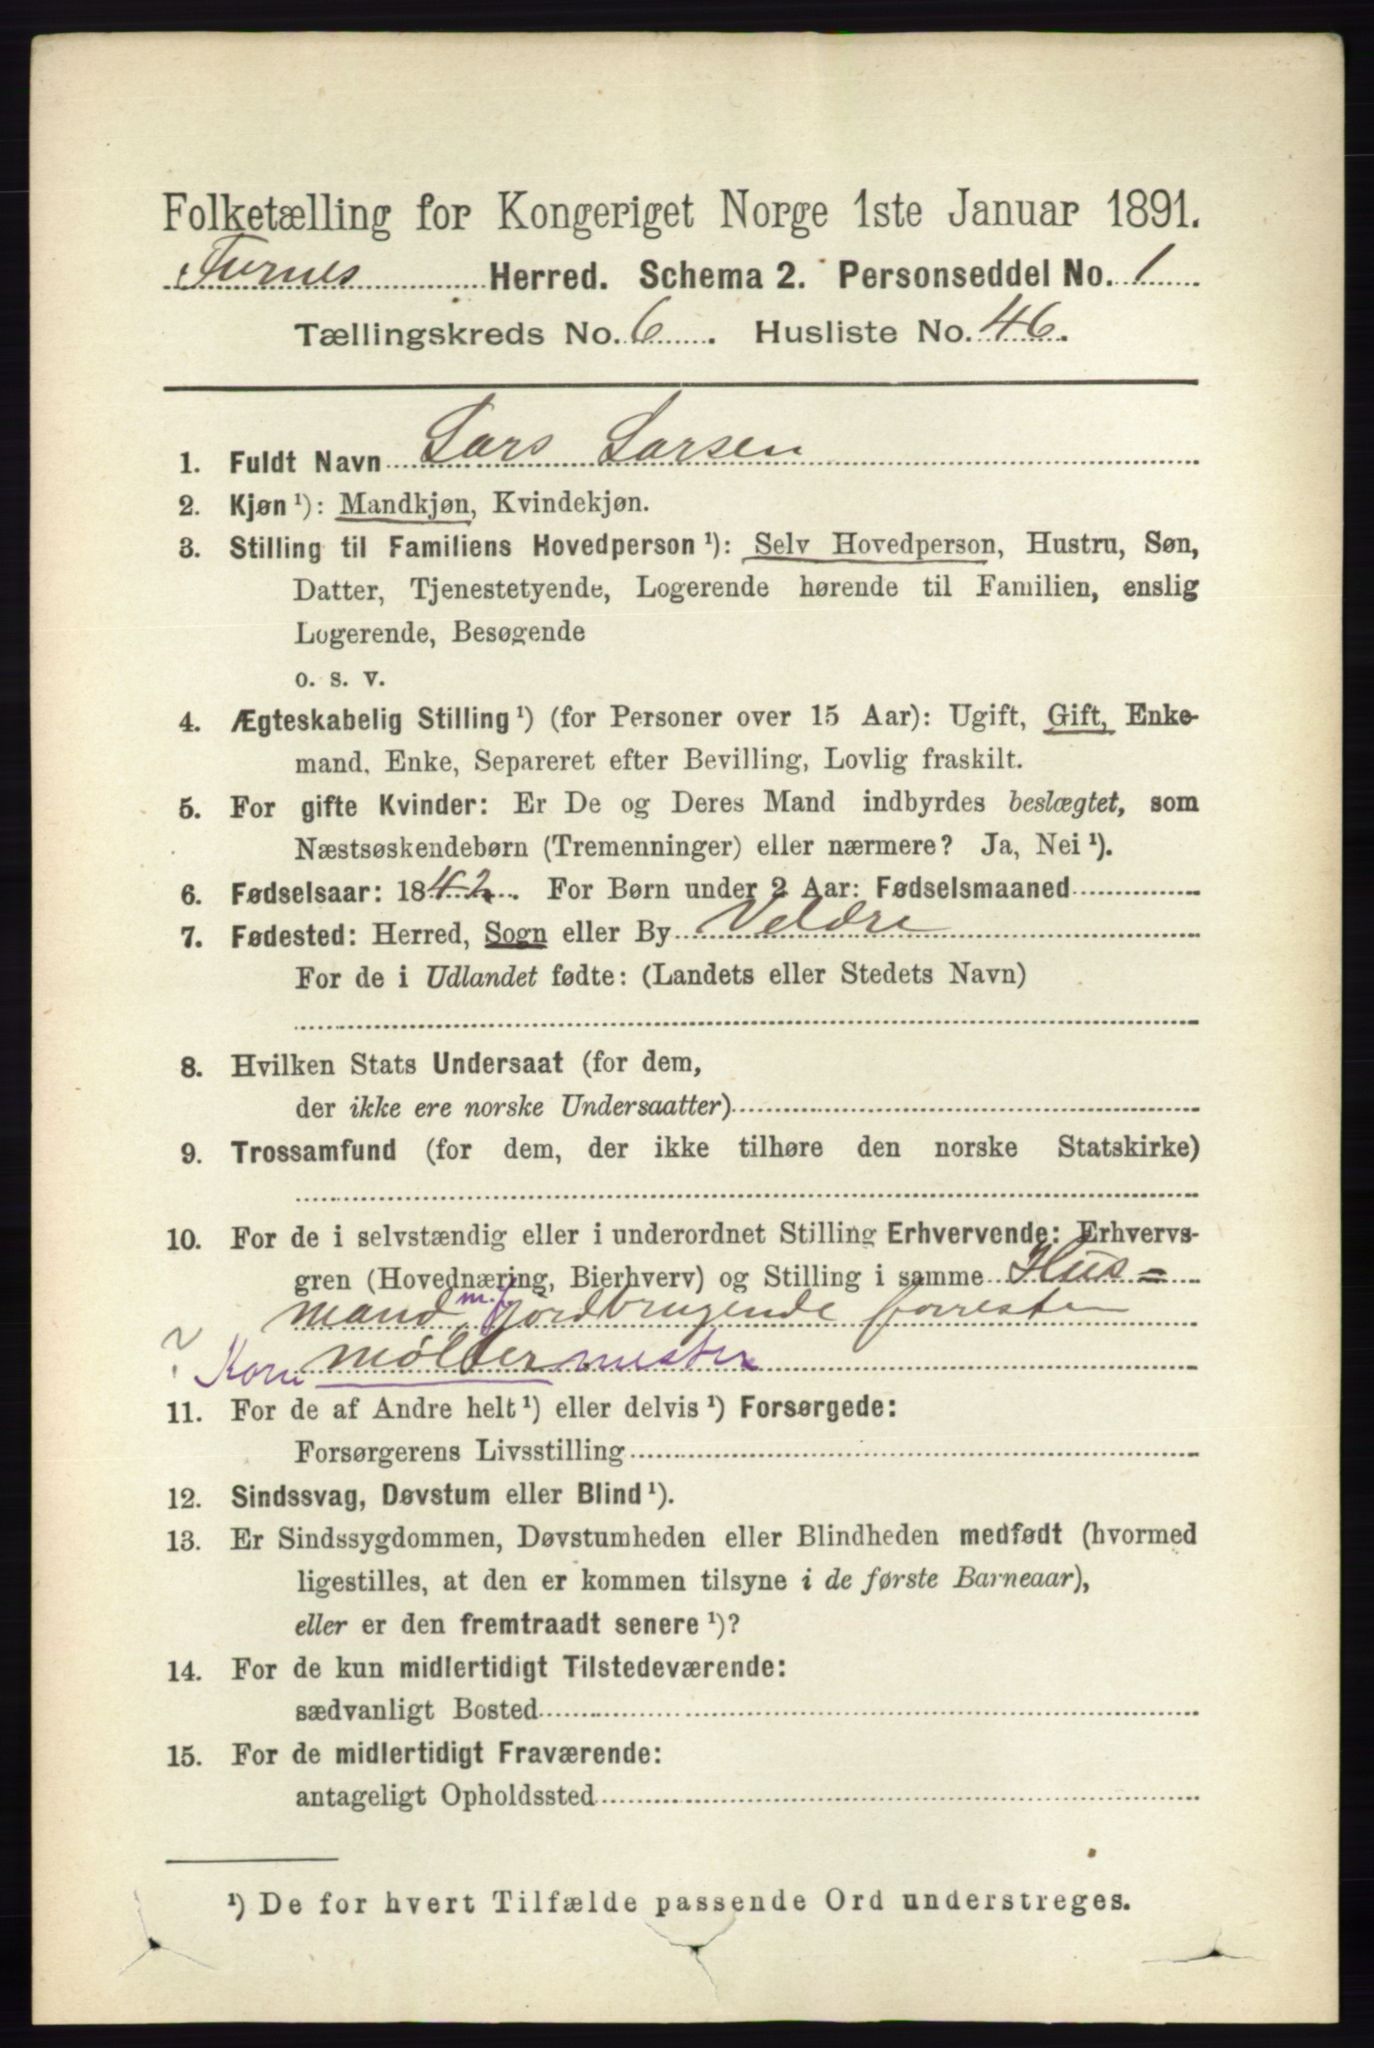 Folketælling for Kongeriget Norge 1ste Januar 1891.
Furnes Herred. Schema 2. Personseddel No. 1
Tællingskreds No. 6. Husliste No. 46.
1. Fuldt Navn Lars Larsen
2. Kjøn ¹): Mandkjøn, Kvindekjøn.
3. Stilling til Familiens Hovedperson ¹): Selv Hovedperson, Hustru, Søn,
Datter, Tjenestetyende, Logerende hørende til Familien, enslig
Logerende, Besøgende
o. s. v.
4. Ægteskabelig Stilling ¹) (for Personer over 15 Aar): Ugift, Gift, Enke-
mand, Enke, Separeret efter Bevilling, Lovlig fraskilt.
5. For gifte Kvinder: Er De og Deres Mand indbyrdes beslægtet, som
Næstsøskendebørn (Tremenninger) eller nærmere? Ja, Nei ¹).
6. Fødselsaar: 1842. For Børn under 2 Aar: Fødselsmaaned
7. Fødested: Herred, Sogn eller By Veldre
For de i Udlandet fødte: (Landets eller Stedets Navn)
8. Hvilken Stats Undersaat (for dem,
der ikke ere norske Undersaatter)
9. Trossamfund (for dem, der ikke tilhøre den norske Statskirke)
10. For de i selvstændig eller i underordnet Stilling Erhvervende: Erhvervs-
gren (Hovednæring, Bierhverv) og Stilling i samme Hus=
mand m. j jordbrugende forresten
? Korn møllermester
11. For de af Andre helt ¹) eller delvis ¹) Forsørgede:
Forsørgerens Livsstilling
12. Sindssvag, Døvstum eller Blind ¹).
13. Er Sindssygdommen, Døvstumheden eller Blindheden medfødt (hvormed
ligestilles, at den er kommen tilsyne i de første Barneaar),
eller er den fremtraadt senere ¹)?
14. For de kun midlertidigt Tilstedeværende:
sædvanligt Bosted
15. For de midlertidigt Fraværende:
antageligt Opholdssted
¹) De for hvert Tilfælde passende Ord understreges.